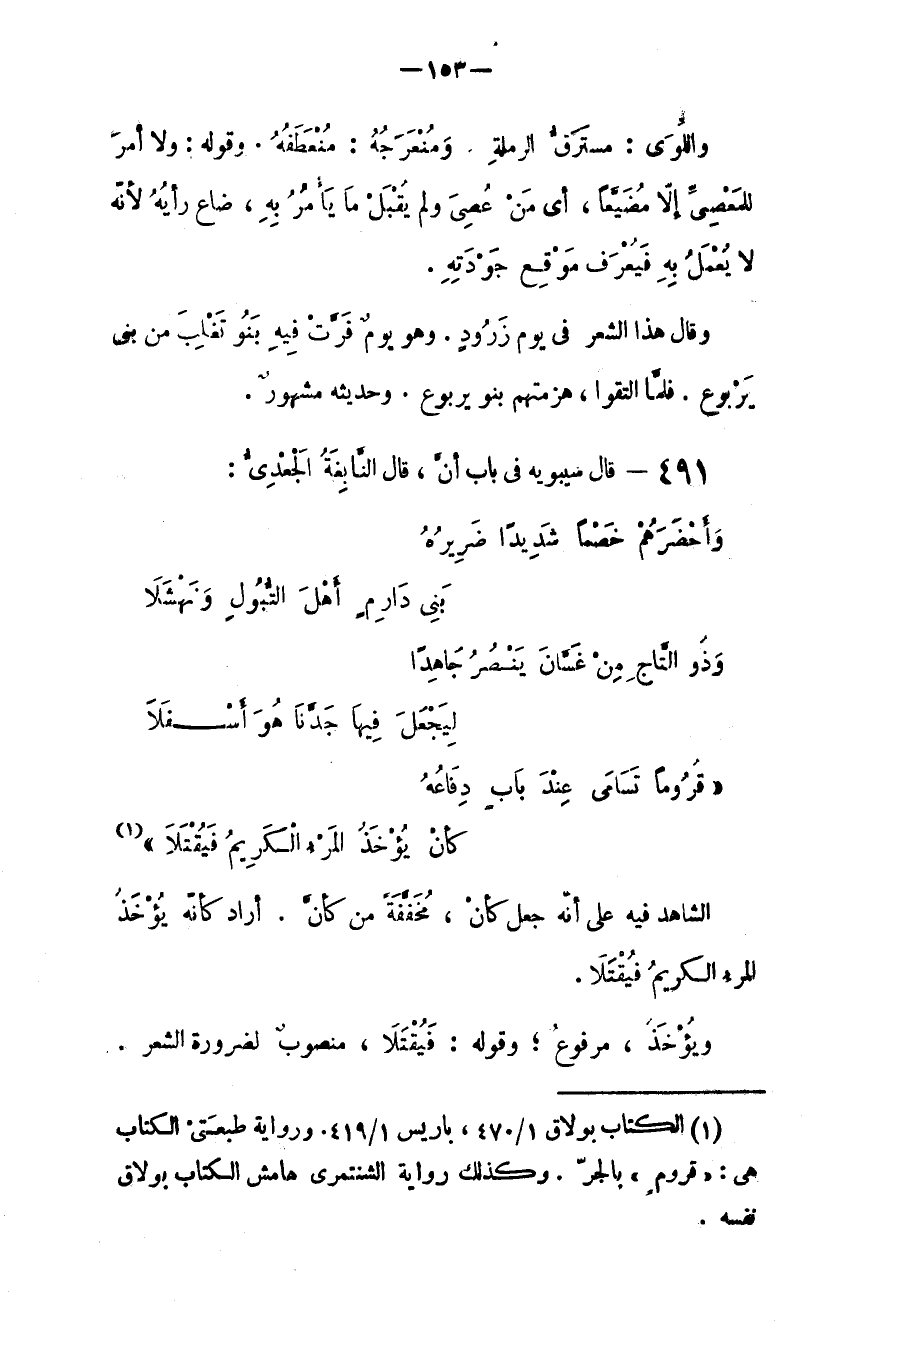 —١٥٣—
واللِّوَى : مسترَقُّ الرملةِ . وَمُنْعَرَجُهُ : مُنْعَطَفُهُ . وقوله : ولا أمرَ
للمَعْصِىِّ إلّا مُضَيَّعاً ، أى مَنْ عُصِىَ ولم يُقْبَلْ مَا يَأْمُرُ بِهِ ، ضاع رأيُهُ لأنّه
لا يُعْمَلُ بِهِ فَيُعْرَف مَوْقِع جَوْدَتِهِ .
وقال هذا الشعر فى يوم زَرُودٍ . وهو يومٌ فَرَّتْ فِيهِ بَنُو تَغْلِبَ من بنى
يَرْبوع . فلمَّا التقوا ، هزمتهم بنو يربوع . وحديثه مشهورٌ .
٤٩١ – قال سيبويه فى باب أنَّ ، قال النَّابِغَةُ الْجَعْدِىُّ :
وَأَحْضَرَهُمْ خَصْماً شَدِيدًا ضَرِيرُهُ
بَنِى دَارِمٍ أَهْلَ التُّبُولِ وَنَهْشَلَا
وَذُو التَّاجِ مِنْ غَسَّانَ يَنْصُرُ جَاهِدًا
لِيَجْعَلَ فِيهَا جَدَّنَا هُوَ أَسْـفَلَا
« قُرُوماً تَسَامَى عِنْدَ بَابٍ دِفَاعُهُ
كأنْ يُؤْخَذُ المَرْءِ الْكَرِيمُ فَيُقْتَلَا »(١)
الشاهد فيه على أنّه جعل كأنْ ، مُخَفَّفَةً من كأنَّ . أراد كأنّه يُؤْخَذُ
المرء الكريمُ فيُقْتَلَا .
ويُؤْخَذُ ، مرفوعٌ ؛ وقوله : فَيُقْتَلَا ، منصوبٌ لضرورة الشعر .
(١) الكتاب بولاق ٤٧٠/١ ، باريس ٤١٩/١. ورواية طبعتىْ الكتاب
هى : « قرومٍ » بالجرّ . وكذلك رواية الشنتمرى هامش الكتاب بولاق
نفسه .